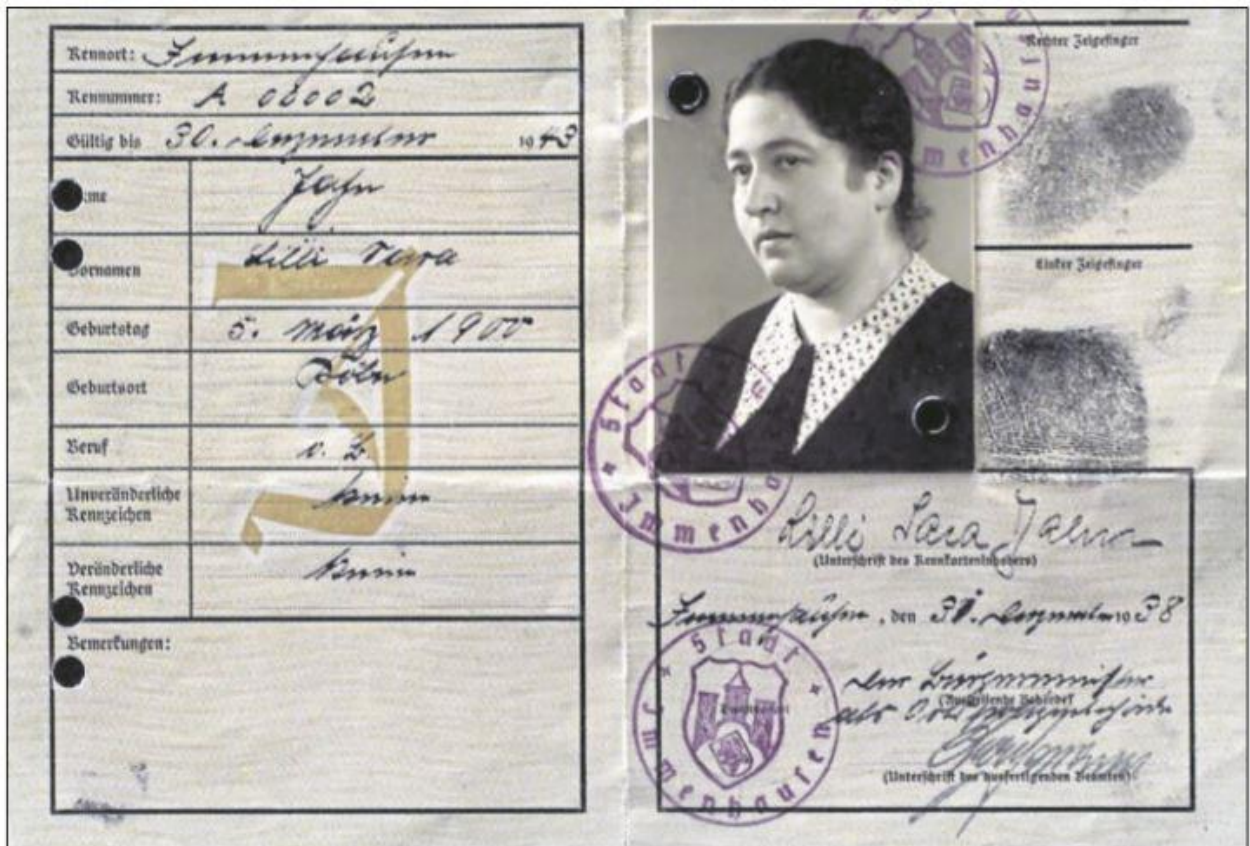 Kennort: Immenhausen
Kennummer: A 00002
Gültig bis 30. Dezember 1943
Name Jahn
Vornamen Lilli Sara
Geburtstag 5. März 1900
Geburtsort Köln
Beruf o. B.
Unveränderliche
Kennzeichen keine
Veränderliche
Kennzeichen keine
Bemerkungen:
J
Rechter Zeigefinger
Linker Zeigefinger
Stadt Immenhausen
Lilli Sara Jahn
(Unterschrift des Kennkarteninhabers)
Immenhausen, den 30. Dezember 1938
Der Bürgermeister
(Ausstellende Behörde)
als Ortspolizeibehörde
(Unterschrift des ausfertigenden Beamten)
Stadt Immenhausen